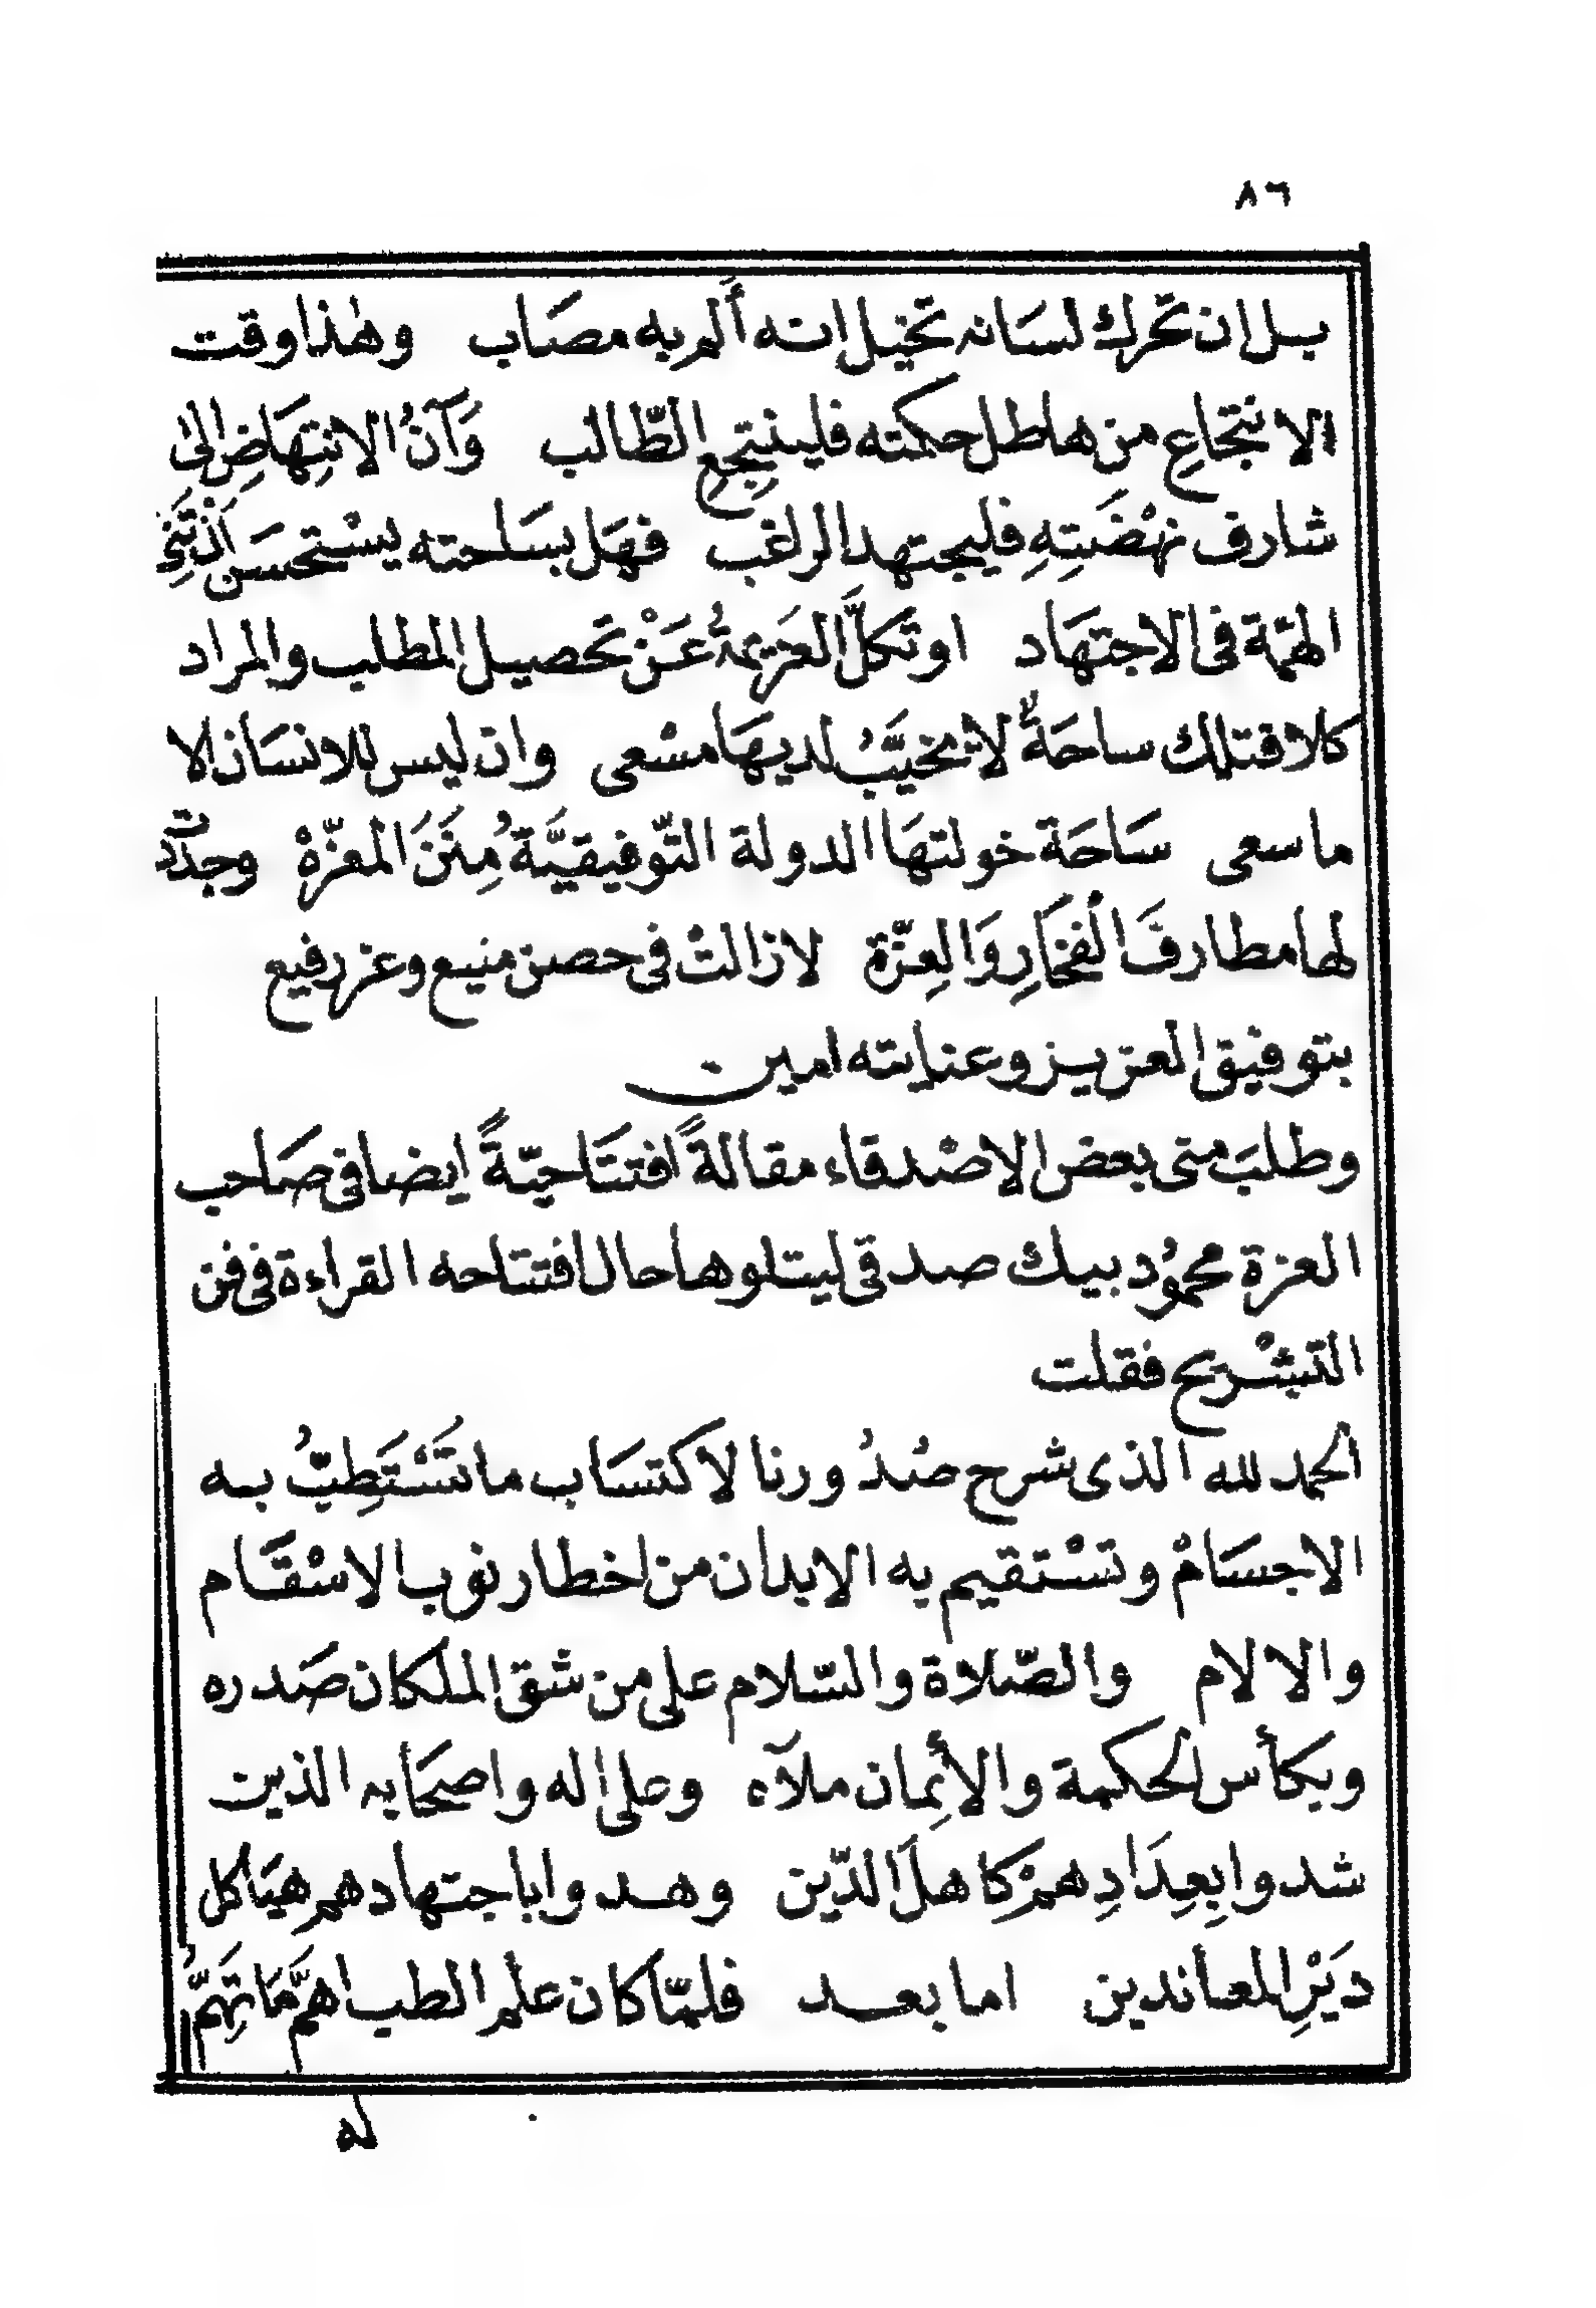 ٨٦
بل ان تحرك لسانه تخيل انه أَلم به مصَاب وهٰذا وقت
الانتجاعِ من هاطل حكمته فلينتجعِ الطّالب وَآنُ الانتِهَاضِ الىٰ
شارف نهْضَتِهِ فليجتهد الراغب فهَل بسَاحته يسْتحسَن اَن تَنِىَ
الهمّة فى الاجتهَاد او تَكلَّ العَزيمةُ عَنْ تَحصيل المطلب والمراد
كلا فتلك ساحَةٌ لا يخيَّبُ لديهَا مسْعى وان ليس للانسَان الا
ما سعى سَاحَة خولتهَا الدولة التّوفيقيَّةُ مِنَنَ المعزّةْ وجدّدت
لها مطارفَ الْفخَارِ وَالعِزّة لا زالتْ فى حصن منيع وعز رفيع
بتوفيق العزيز وعنايته امين
وطلبَ منى بعض الاصْدقاء مقالةً افتتَاحيّةً ايضا فى صَاحب
العزة محمُود بيك صدقى ليتلوها حال افتتاحه القراءة فى فن
التشْريح فقلت
الحمد لله الذى شرح صُدُورنا لاكتسَاب ما تَسْتَطِبُّ به
الاجسَامْ وتسْتقيم به الابدان من اخطار نوب الاسْقَام
والالام والصّلاة والسّلام على من شق الملكان صَدره
وبكأس الحكمة والأِيمان ملآه وعلى اله واصحَابه الذين
شدوا بِعِدَادِهمْ كاهلَ الدّين وهدوا باجتهادهم هيَاكل
دَيْرِ المعاندين اما بعد فلمّا كان علم الطب اهمَّ مَا تَهِمُّ
له